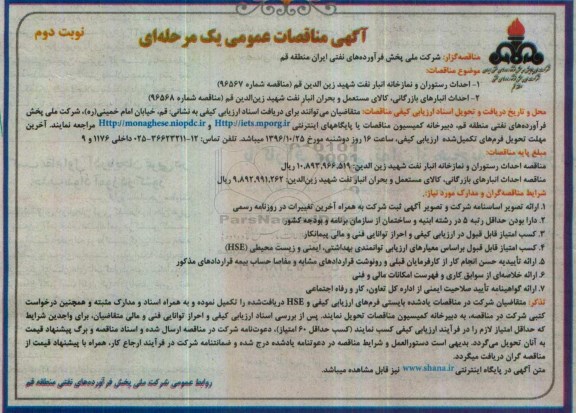 نوبت دوم
آگهی مناقصات عمومی یک مرحله‌ای
مناقصه‌گزار: شرکت ملی پخش فرآورده‌های نفتی ایران منطقه قم
موضوع مناقصات:
۱- احداث رستوران و نمازخانه انبار نفت شهید زین الدین قم (مناقصه شماره ۹۶۵۶۷)
۲- احداث انبارهای بازرگانی، کالای مستعمل و بحران انبار نفت شهید زین‌الدین قم (مناقصه شماره ۹۶۵۶۸)
محل و تاریخ دریافت و تحویل اسناد ارزیابی کیفی مناقصات: متقاضیان می‌توانند برای دریافت اسناد ارزیابی کیفی به نشانی: قم، خیابان امام خمینی(ره)، شرکت ملی پخش
فرآورده‌های نفتی منطقه قم، دبیرخانه کمیسیون مناقصات یا پایگاههای اینترنتی http://iets.mporg.ir و http://monaghese.niopdc.ir مراجعه نمایند. آخرین
مهلت تحویل فرم‌های تکمیل‌شده ارزیابی کیفی، ساعت ۱۶ روز دوشنبه مورخ ۱۳۹۶/۱۰/۲۵ میباشد. تلفن تماس: ۱۲-۳۶۶۲۳۲۱۱-۰۲۵ داخلی ۱۱۷۶ و ۹
مبلغ پایه مناقصات:
مناقصه احداث رستوران و نمازخانه انبار نفت شهید زین‌الدین: ۱۰،۸۹۳،۹۶۶،۵۱۹ ریال
مناقصه احداث انبارهای بازرگانی، کالای مستعمل و بحران انبار نفت شهید زین‌الدین: ۹،۸۹۲،۹۹۱،۲۶۲ ریال
شرایط مناقصه‌گران و مدارک مورد نیاز:
۱. ارائه تصویر اساسنامه شرکت و تصویر آگهی ثبت شرکت به همراه آخرین تغییرات در روزنامه رسمی
۲. دارا بودن حداقل رتبه ۵ در رشته ابنیه و ساختمان از سازمان برنامه و بودجه کشور
۳. کسب امتیاز قابل قبول در ارزیابی کیفی و احراز توانایی فنی و مالی پیمانکار
۴. کسب امتیاز قابل قبول براساس معیارهای ارزیابی توانمندی بهداشتی، ایمنی و زیست محیطی (HSE)
۵. ارائه تأییدیه حسن انجام کار از کارفرمایان قبلی و رونوشت قراردادهای مشابه و مفاصا حساب بیمه قراردادهای مذکور
۶. ارائه خلاصه‌ای از سوابق کاری و فهرست امکانات مالی و فنی
۷. ارائه گواهینامه تأیید صلاحیت ایمنی از اداره کل تعاون، کار و رفاه اجتماعی
تذکر: متقاضیان شرکت در مناقصات یادشده بایستی فرم‌های ارزیابی کیفی و HSE دریافت‌شده را تکمیل نموده و به همراه اسناد و مدارک مثبته و همچنین درخواست
کتبی شرکت در مناقصه، به دبیرخانه کمیسیون مناقصات تحویل نمایند. پس از بررسی اسناد ارزیابی کیفی و احراز توانایی فنی و مالی متقاضیان، برای واجدین شرایط
که حداقل امتیاز لازم را در فرآیند ارزیابی کیفی کسب نمایند (کسب حداقل ۶۰ امتیاز)، دعوت‌نامه شرکت در مناقصه ارسال شده و اسناد مناقصه و برگ پیشنهاد قیمت
به آنان تحویل می‌گردد. بدیهی است دستورالعمل و شرایط مناقصه در دعوتنامه یادشده درج شده و ضمانتنامه شرکت در فرآیند ارجاع کار، همراه با پیشنهاد قیمت از
مناقصه گران دریافت میگردد.
متن آگهی در پایگاه اینترنتی www.shana.ir نیز قابل مشاهده میباشد.
روابط عمومی شرکت ملی پخش فرآورده‌های نفتی منطقه قم